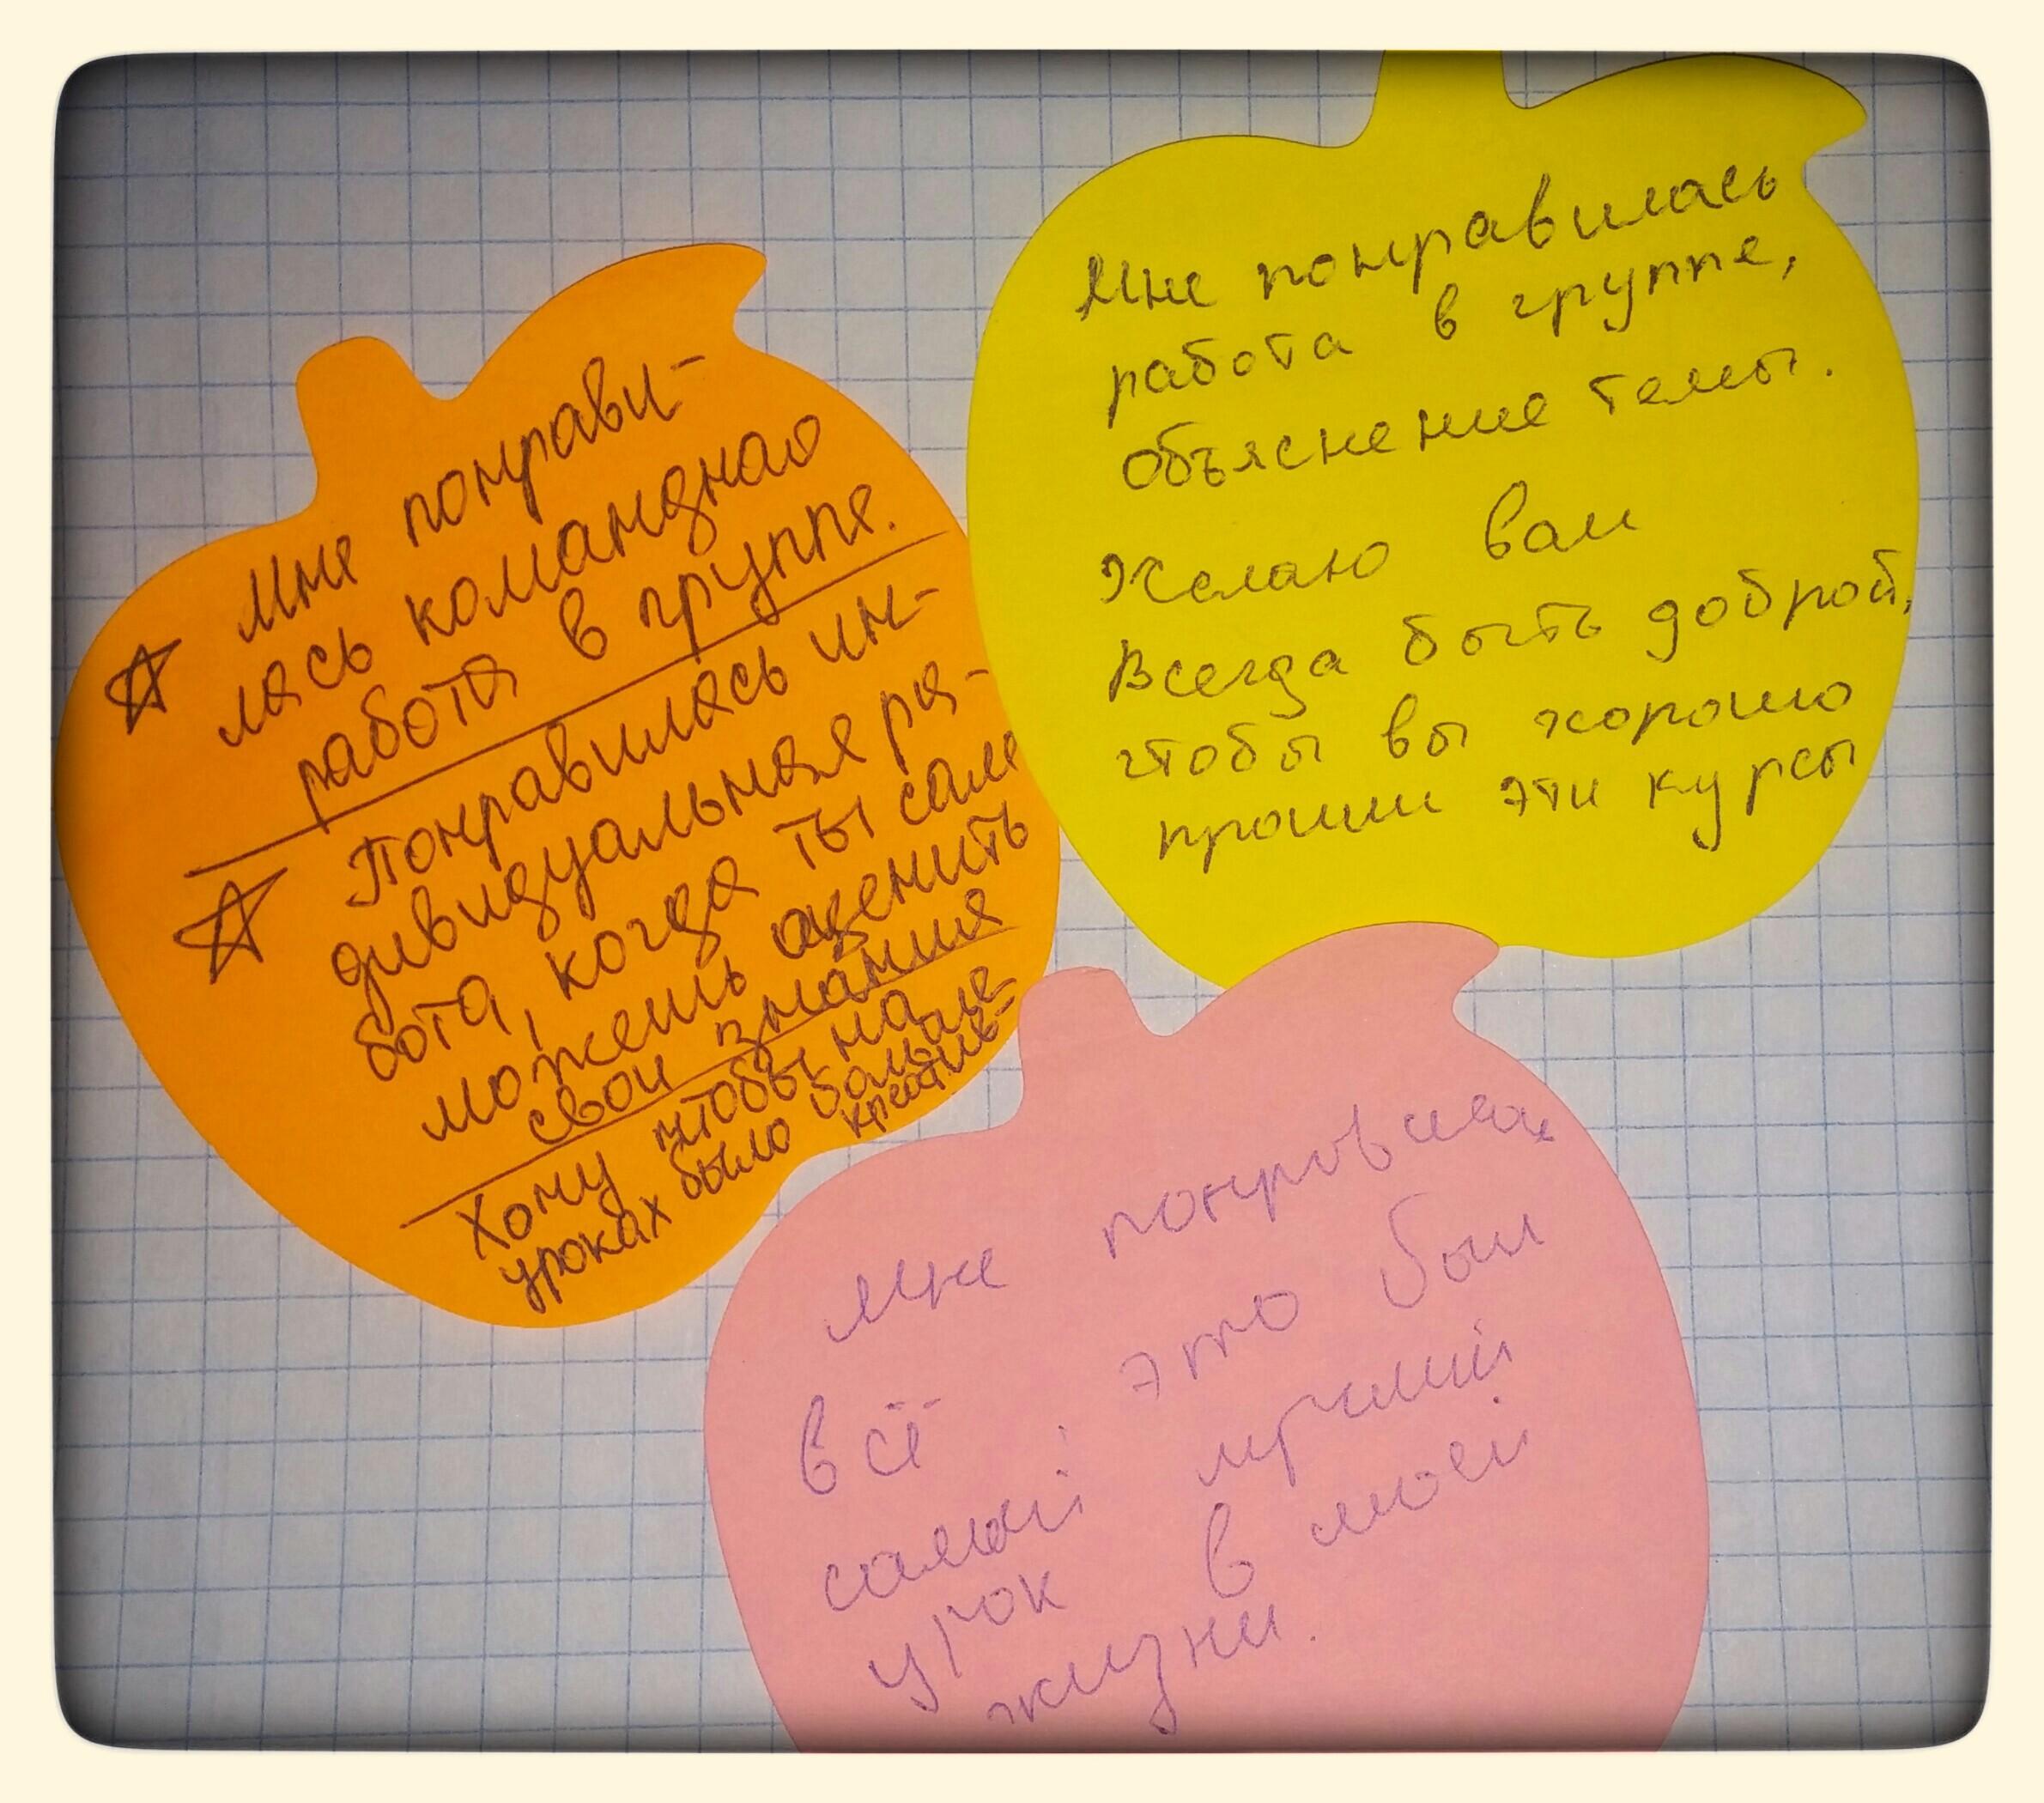 Мне понрави-
лась командная
работа в группе.
Понравилась ин-
дивидуальная ра-
бота, когда ты сам
можешь оценить
свои знания
Хочу чтобы на
уроках было больше
креатив-
Мне понравилась
работа в группе,
объяснение темы.
Желаю вам
Всегда быть доброй,
чтобы вы хорошо
прошли эти курсы
Мне
всё это был
самый лучший
урок в моей
жизни.